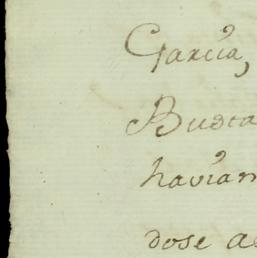 García,
Busta
havian
dose a